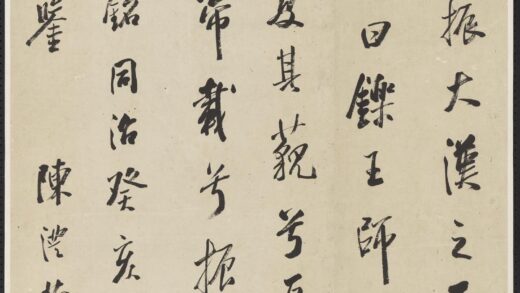 振大漢之天
曰鑠王師
夐其藐兮亙
帝載兮振
銘同治癸亥
鑒 陳澧